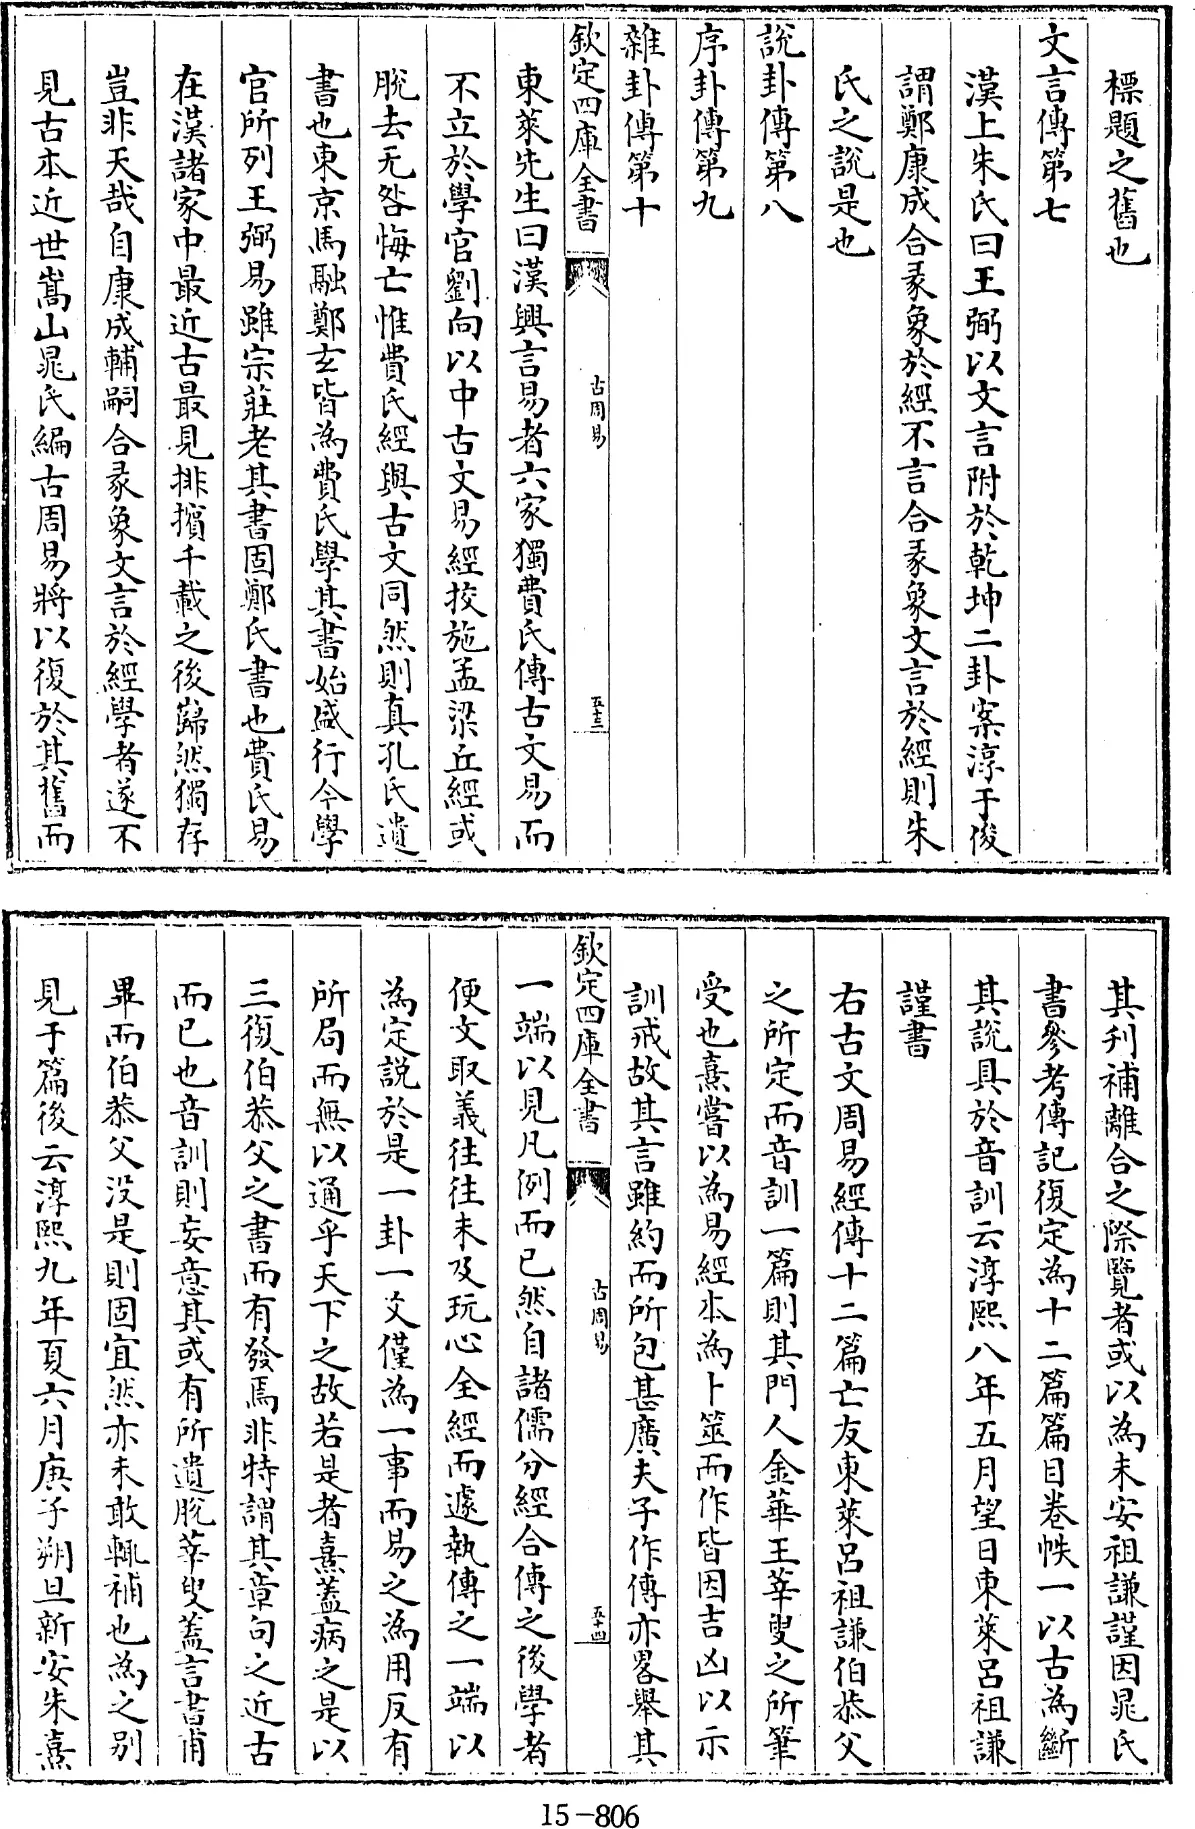 標題之舊也
文言傳第七
漢上朱氏曰王弼以文言附於乾坤二卦案淳于俊
謂鄭康成合彖象於經不言合彖象文言於經則朱
氏之說是也
說卦傳第八
序卦傳第九
雜卦傳第十
欽定四庫全書
古周易
五十三
東萊先生曰漢興言易者六家獨費氏傳古文易而
不立於學官劉向以中古文易經校施孟梁丘經或
脫去无咎悔亡惟費氏經與古文同然則真孔氏遺
書也東京馬融鄭玄皆為費氏學其書始盛行今學
官所列王弼易雖宗莊老其書固鄭氏書也費氏易
在漢諸家中最近古最見排擯千載之後巋然獨存
豈非天哉自康成輔嗣合彖象文言於經學者遂不
見古本近世嵩山晁氏編古周易將以復於其舊而
其刊補離合之際覽者或以為未安祖謙謹因晁氏
書參考傳記復定為十二篇篇目卷帙一以古為斷
其說具於音訓云淳熙八年五月望日東萊呂祖謙
謹書
右古文周易經傳十二篇亡友東萊呂祖謙伯恭父
之所定而音訓一篇則其門人金華王莘叟之所筆
受也熹嘗以為易經本為卜筮而作皆因吉凶以示
訓戒故其言雖約而所包甚廣夫子作傳亦畧舉其
欽定四庫全書
古周易
五十四
一端以見凡例而已然自諸儒分經合傳之後學者
便文取義往往未及玩心全經而遽執傳之一端以
為定說於是一卦一爻僅為一事而易之為用反有
所局而無以通乎天下之故若是者熹蓋病之是以
三復伯恭父之書而有發焉非特謂其章句之近古
而已也音訓則妄意其或有所遺脫莘叟蓋言書甫
畢而伯恭父沒是則固宜然亦未敢輒補也為之別
見于篇後云淳熙九年夏六月庚子朔旦新安朱熹
15-806